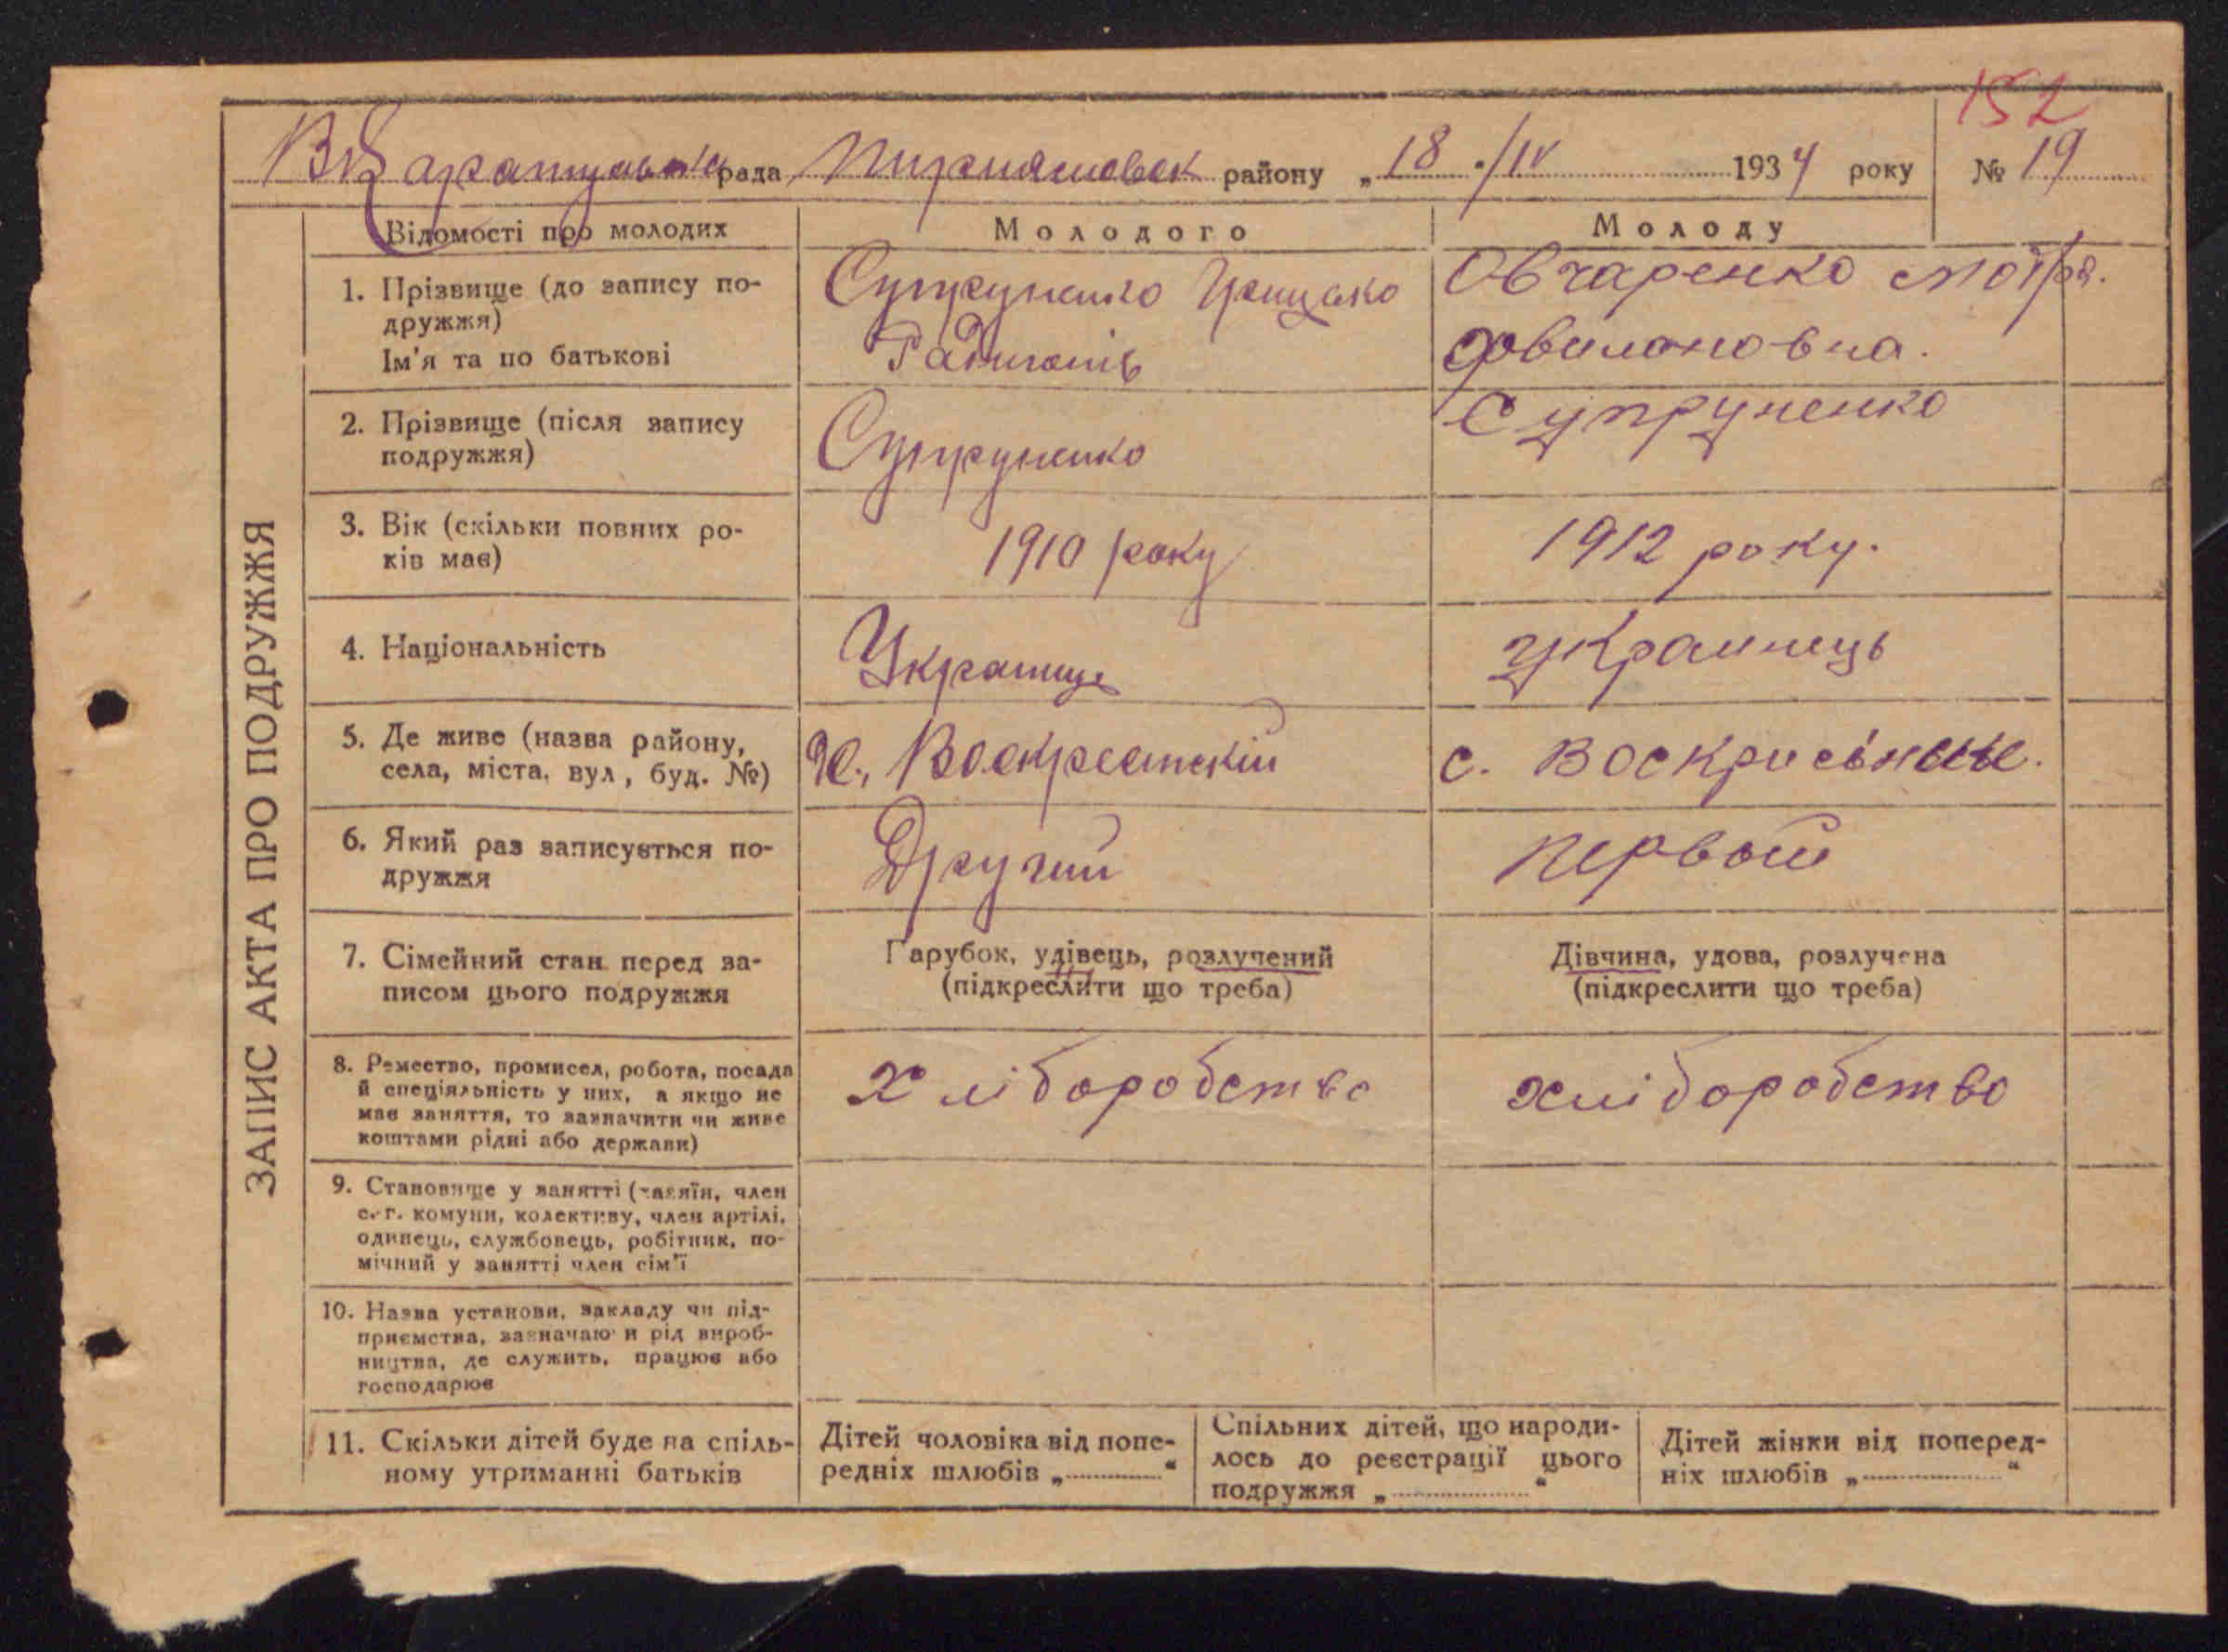 152
рада району „18 "/IV 1934 року № 19
ЗАПИС АКТА ПРО ПОДРУЖЖЯ
Відомості про молодих
Молодого
Молоду
1. Прізвище (до запису по-
дружжя)
Ім'я та по батькові
Супруненко Грицько
Овчаренко Мотря.
2. Прізвище (після запису
подружжя)
Супруненко
Супруненко
3. Вік (скільки повних ро-
ків має)
1910 року
1912 року.
4. Національність
Українць
українець
5. Де живе (назва району,
села, міста, вул, буд. №)
с.
6. Який раз записується по-
дружжя
Другий
первой
7. Сімейний стан перед за-
писом цього подружжя
Парубок, удівець, розлучений
(підкреслити що треба)
Дівчина, удова, розлучена
(підкреслити що треба)
8. Ремество, промисел, робота, посада
й спеціяльність у них, а якщо не
має заняття, то зазначити чи живе
коштами рідні або держави)
хліборобство
хліборобство
9. Становище у занятті (хазяїн, член
с.-г. комуни, колективу, член артілі,
одинець, службовець, робітник, по-
мічний у занятті член сім'ї
10. Назва установи, закладу чи під-
приємства, зазначаючи рід вироб-
ництва, де служить, працює або
господарює
11. Скільки дітей буде на спіль-
ному утриманні батьків
Дітей чоловіка від попе-
редніх шлюбів „ “
Спільних дітей, що народи-
лось до реєстрації цього
подружжя „ “
Дітей жінки від поперед-
ніх шлюбів „ “